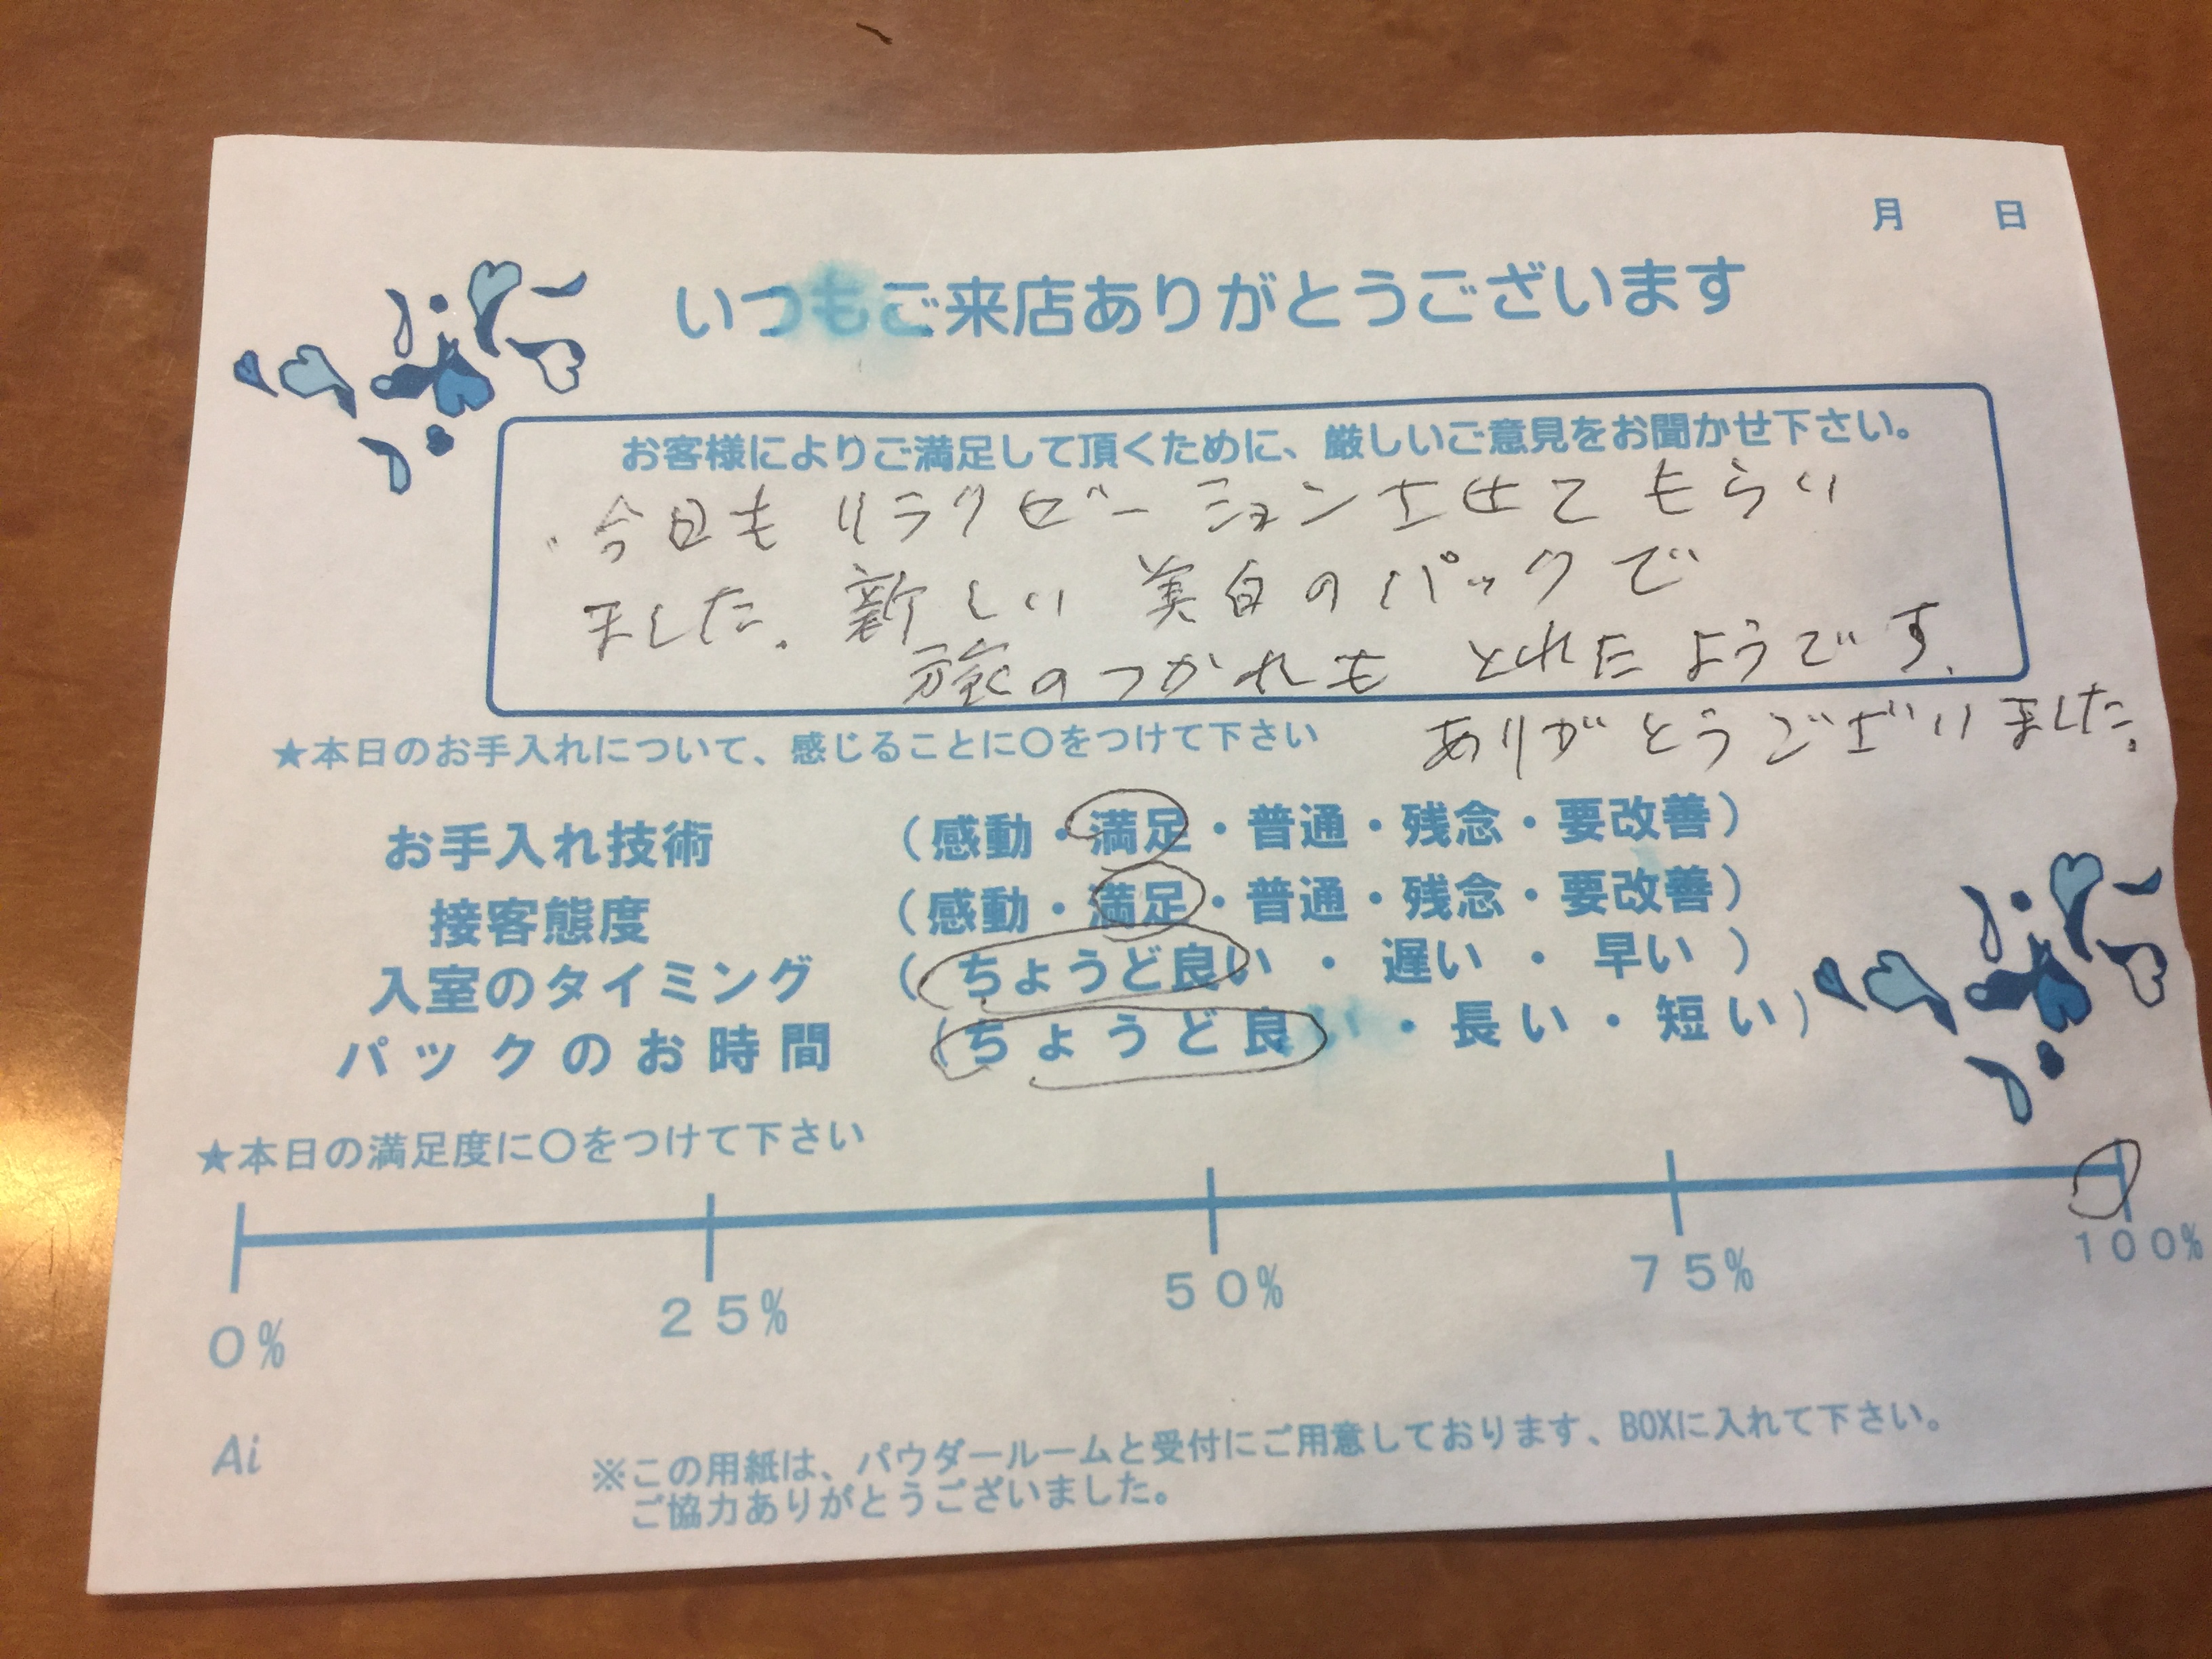 月　　日
いつもご来店ありがとうございます
お客様によりご満足して頂くために、厳しいご意見をお聞かせ下さい。
今日も リラクゼーションさせて もらい
ました。新しい 美白のパックで
旅のつかれも とれたようです。
ありがとうございました。
★本日のお手入れについて、感じることに〇をつけて下さい
お手入れ技術　（感動・満足・普通・残念・要改善）
接客態度　（感動・満足・普通・残念・要改善）
入室のタイミング　（ちょうど良い・遅い・早い）
パックのお時間　（ちょうど良い・長い・短い）
★本日の満足度に〇をつけて下さい
0%　25%　50%　75%　100%
Ai
※この用紙は、パウダールームと受付にご用意しております、BOXに入れて下さい。
ご協力ありがとうございました。